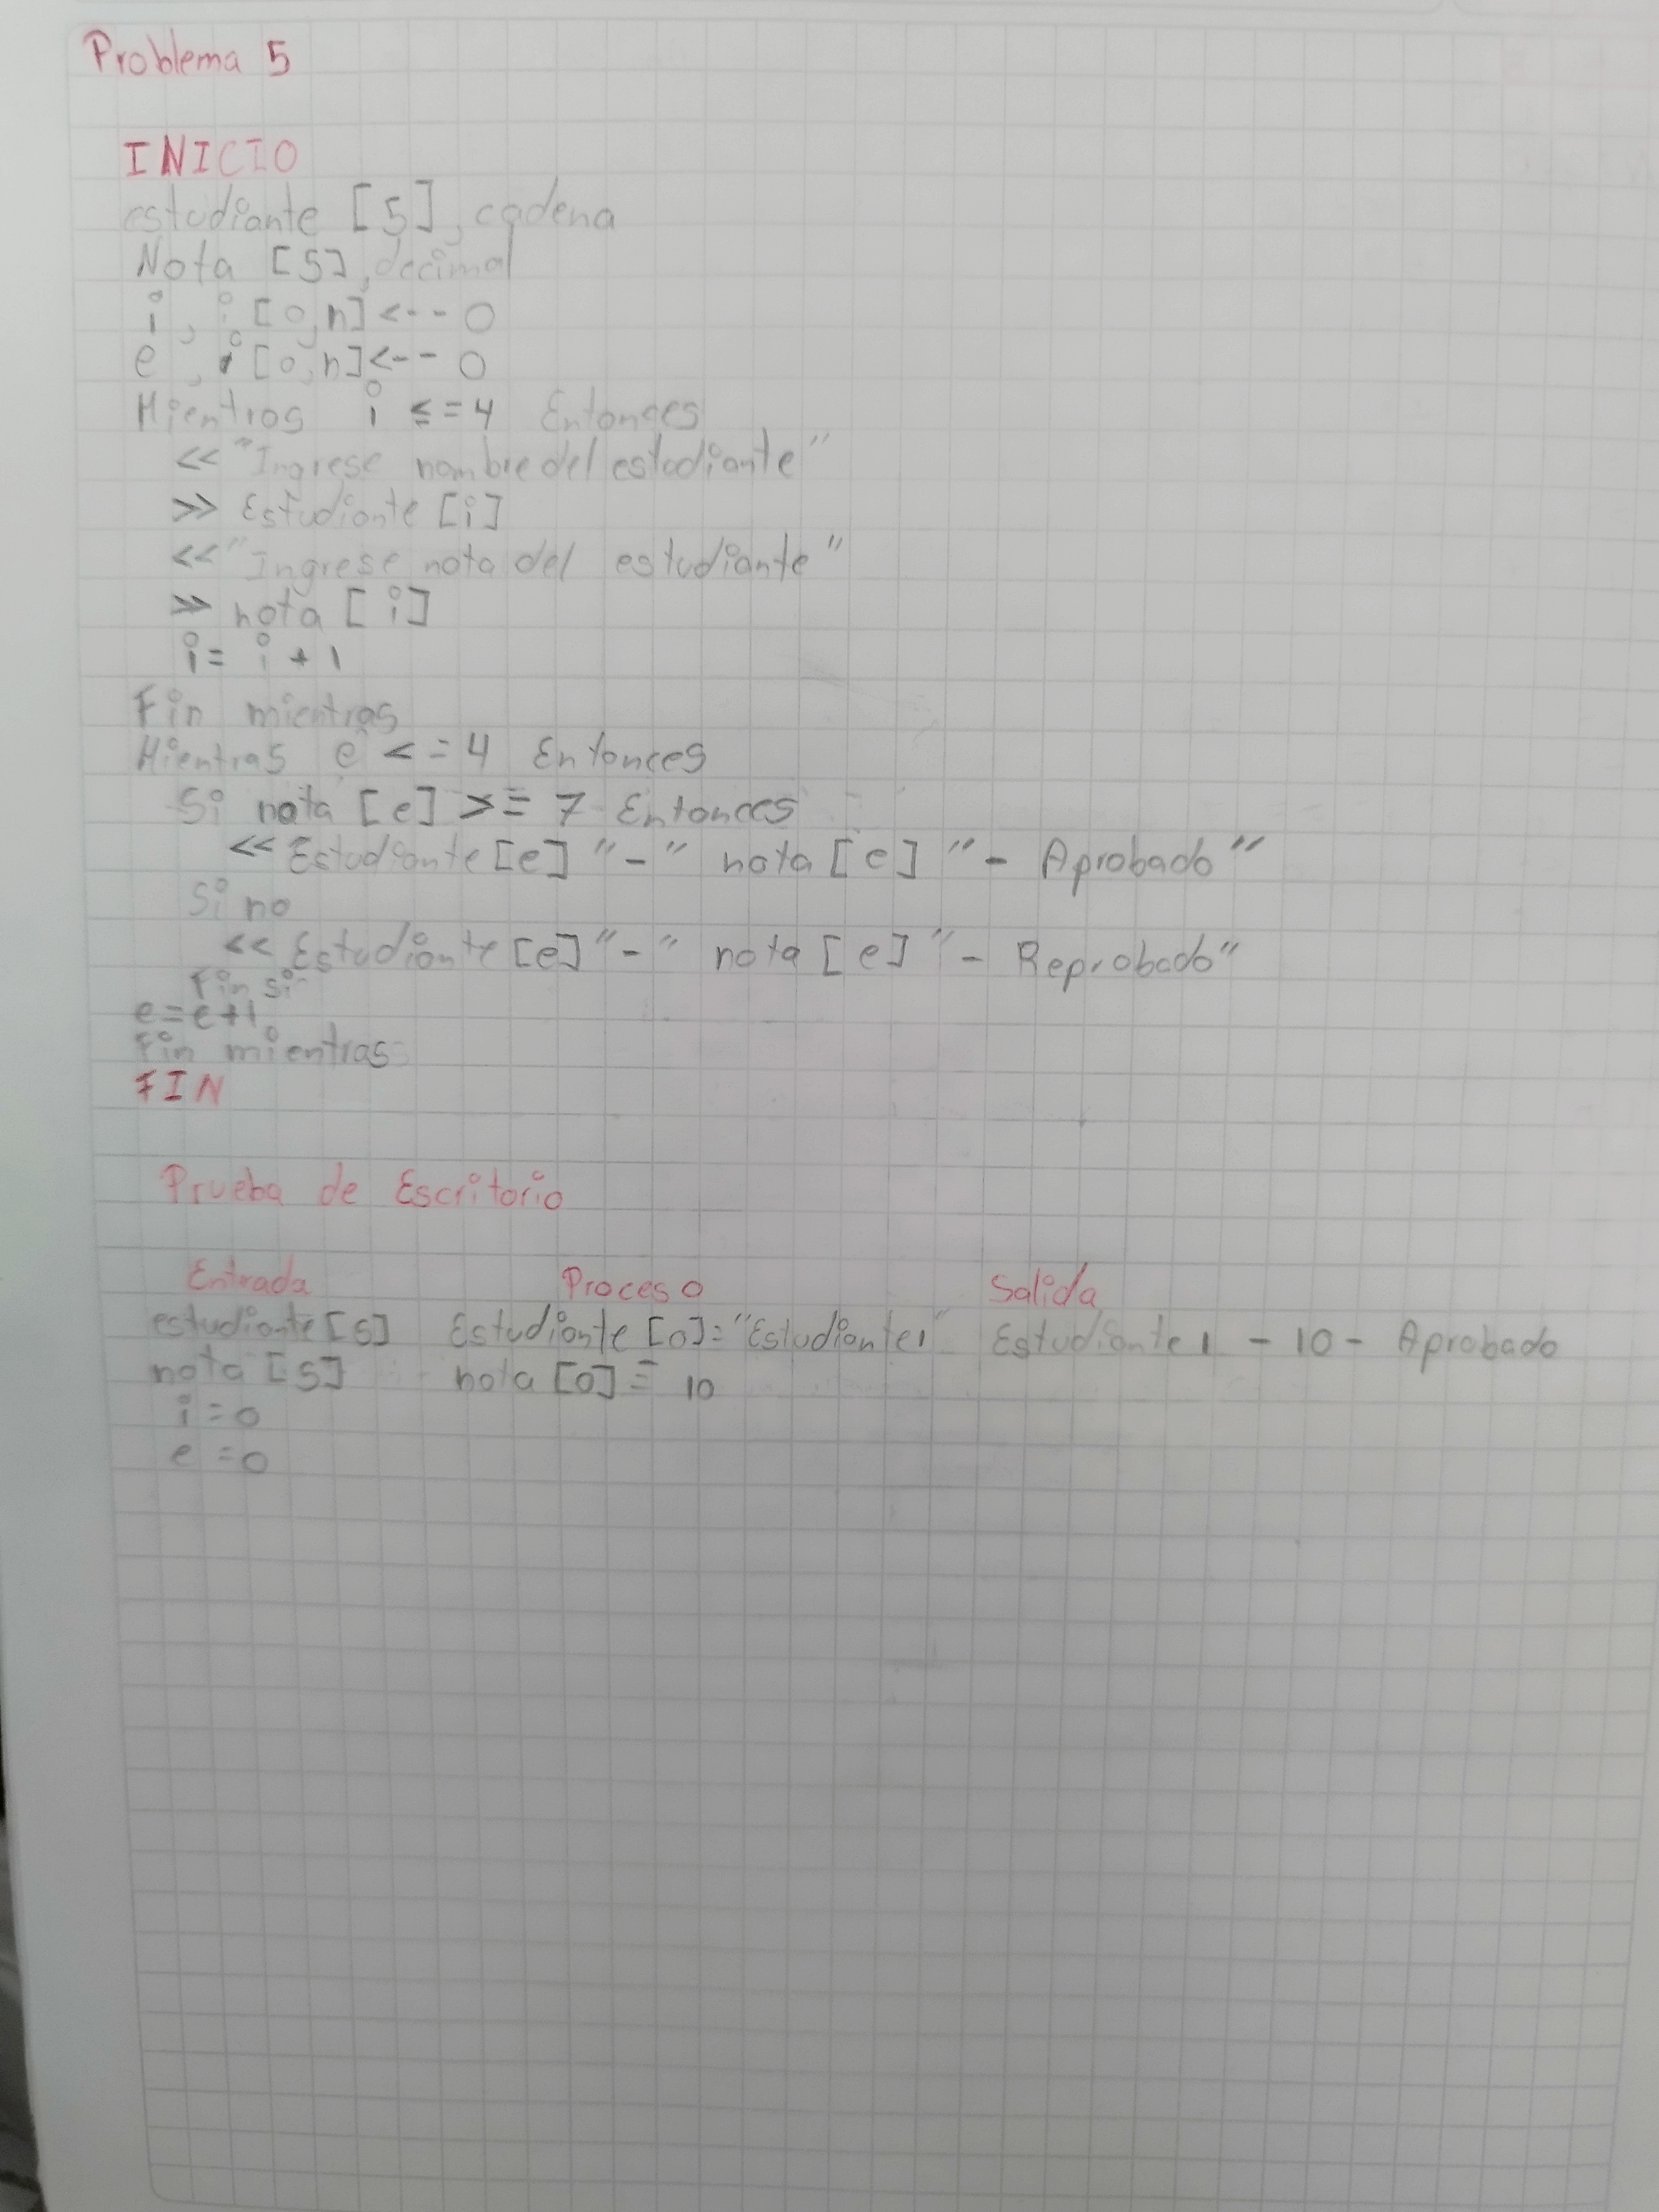 Problema 5
INICIO
estudiante [5], cadena
Nota [5], decimal
i, i [0,n] <-- 0
e, i [0,n] <-- 0
Mientras i <=4 Entonces
<< "Ingrese nombre del estudiante"
>> Estudiante [i]
<< "Ingrese nota del estudiante"
>> nota [i]
i = i + 1
Fin mientras
Mientras e <= 4 Entonces
Si nota [e] >= 7 Entonces
<< Estudiante [e] "-" nota [e] "- Aprobado"
Si no
<< Estudiante [e] "-" nota [e] "- Reprobado"
Fin si
e = e+1
Fin mientras
FIN
Prueba de Escritorio
Entrada Proceso Salida
estudiante [5] Estudiante [0]= "Estudiante1" Estudiante 1 - 10 - Aprobado
nota [5] nota [0] = 10
i = 0
e = 0